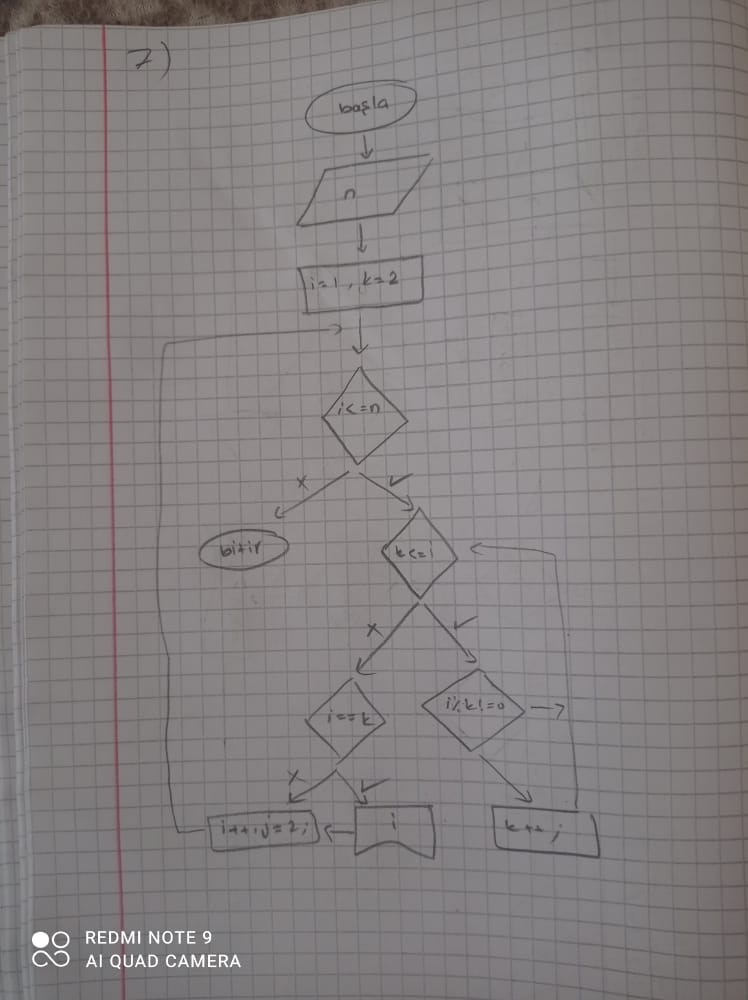 7)
başla
n
i=1, k=2
i<=n
x ✓
bitir
k<=i
x ✓
i==k
i%k!=0
x ✓
i++, j=2;
i
k++;
REDMI NOTE 9
AI QUAD CAMERA